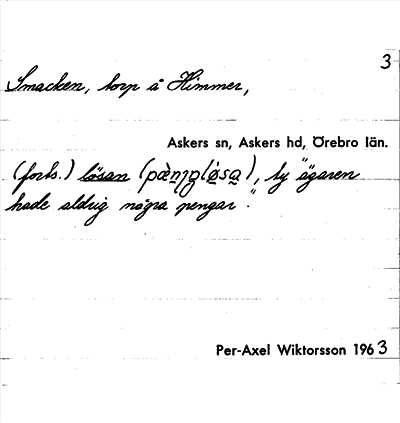 3
Smacken, torp å Himmer,
Askers sn, Askers hd, Örebro län.
(forts.) lösan (pæ̀ŋgløsa), ty "ägaren
hade aldrig några pengar".
Per-Axel Wiktorsson 1963